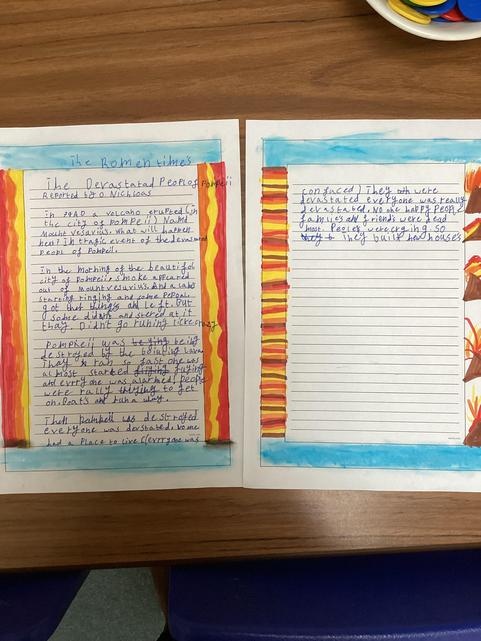 The Romen times
The Devastatad People of Pompeii
Reported by: O. Nichloas
In 79AD a volcano erupted (in
the city of Pompeii) Namd
Mount vesavius. what will happen
next? In tragic event of the
peopl of Pompeii.
In the morning of the beautiful
city of Pompeii smoke appeared
out of mount vesuvius. And a
starting ringing and some Pepol
got there things and left. But
some didnt and stered at it
they. Didn't go runing
Pompeii was being
destroyed by the lava
They ran so fast one was
almost started
and evryone was alarmed people
were rally trying to get
on. Boats and run a way.
Then Pompeii was destroyed
everyone was devstated. no one
had a place to live (everyone was
confused) They were
devastated everyone was really
devastated. No one happy people
families and friends were dead
most. People were crying. so
They built new houses